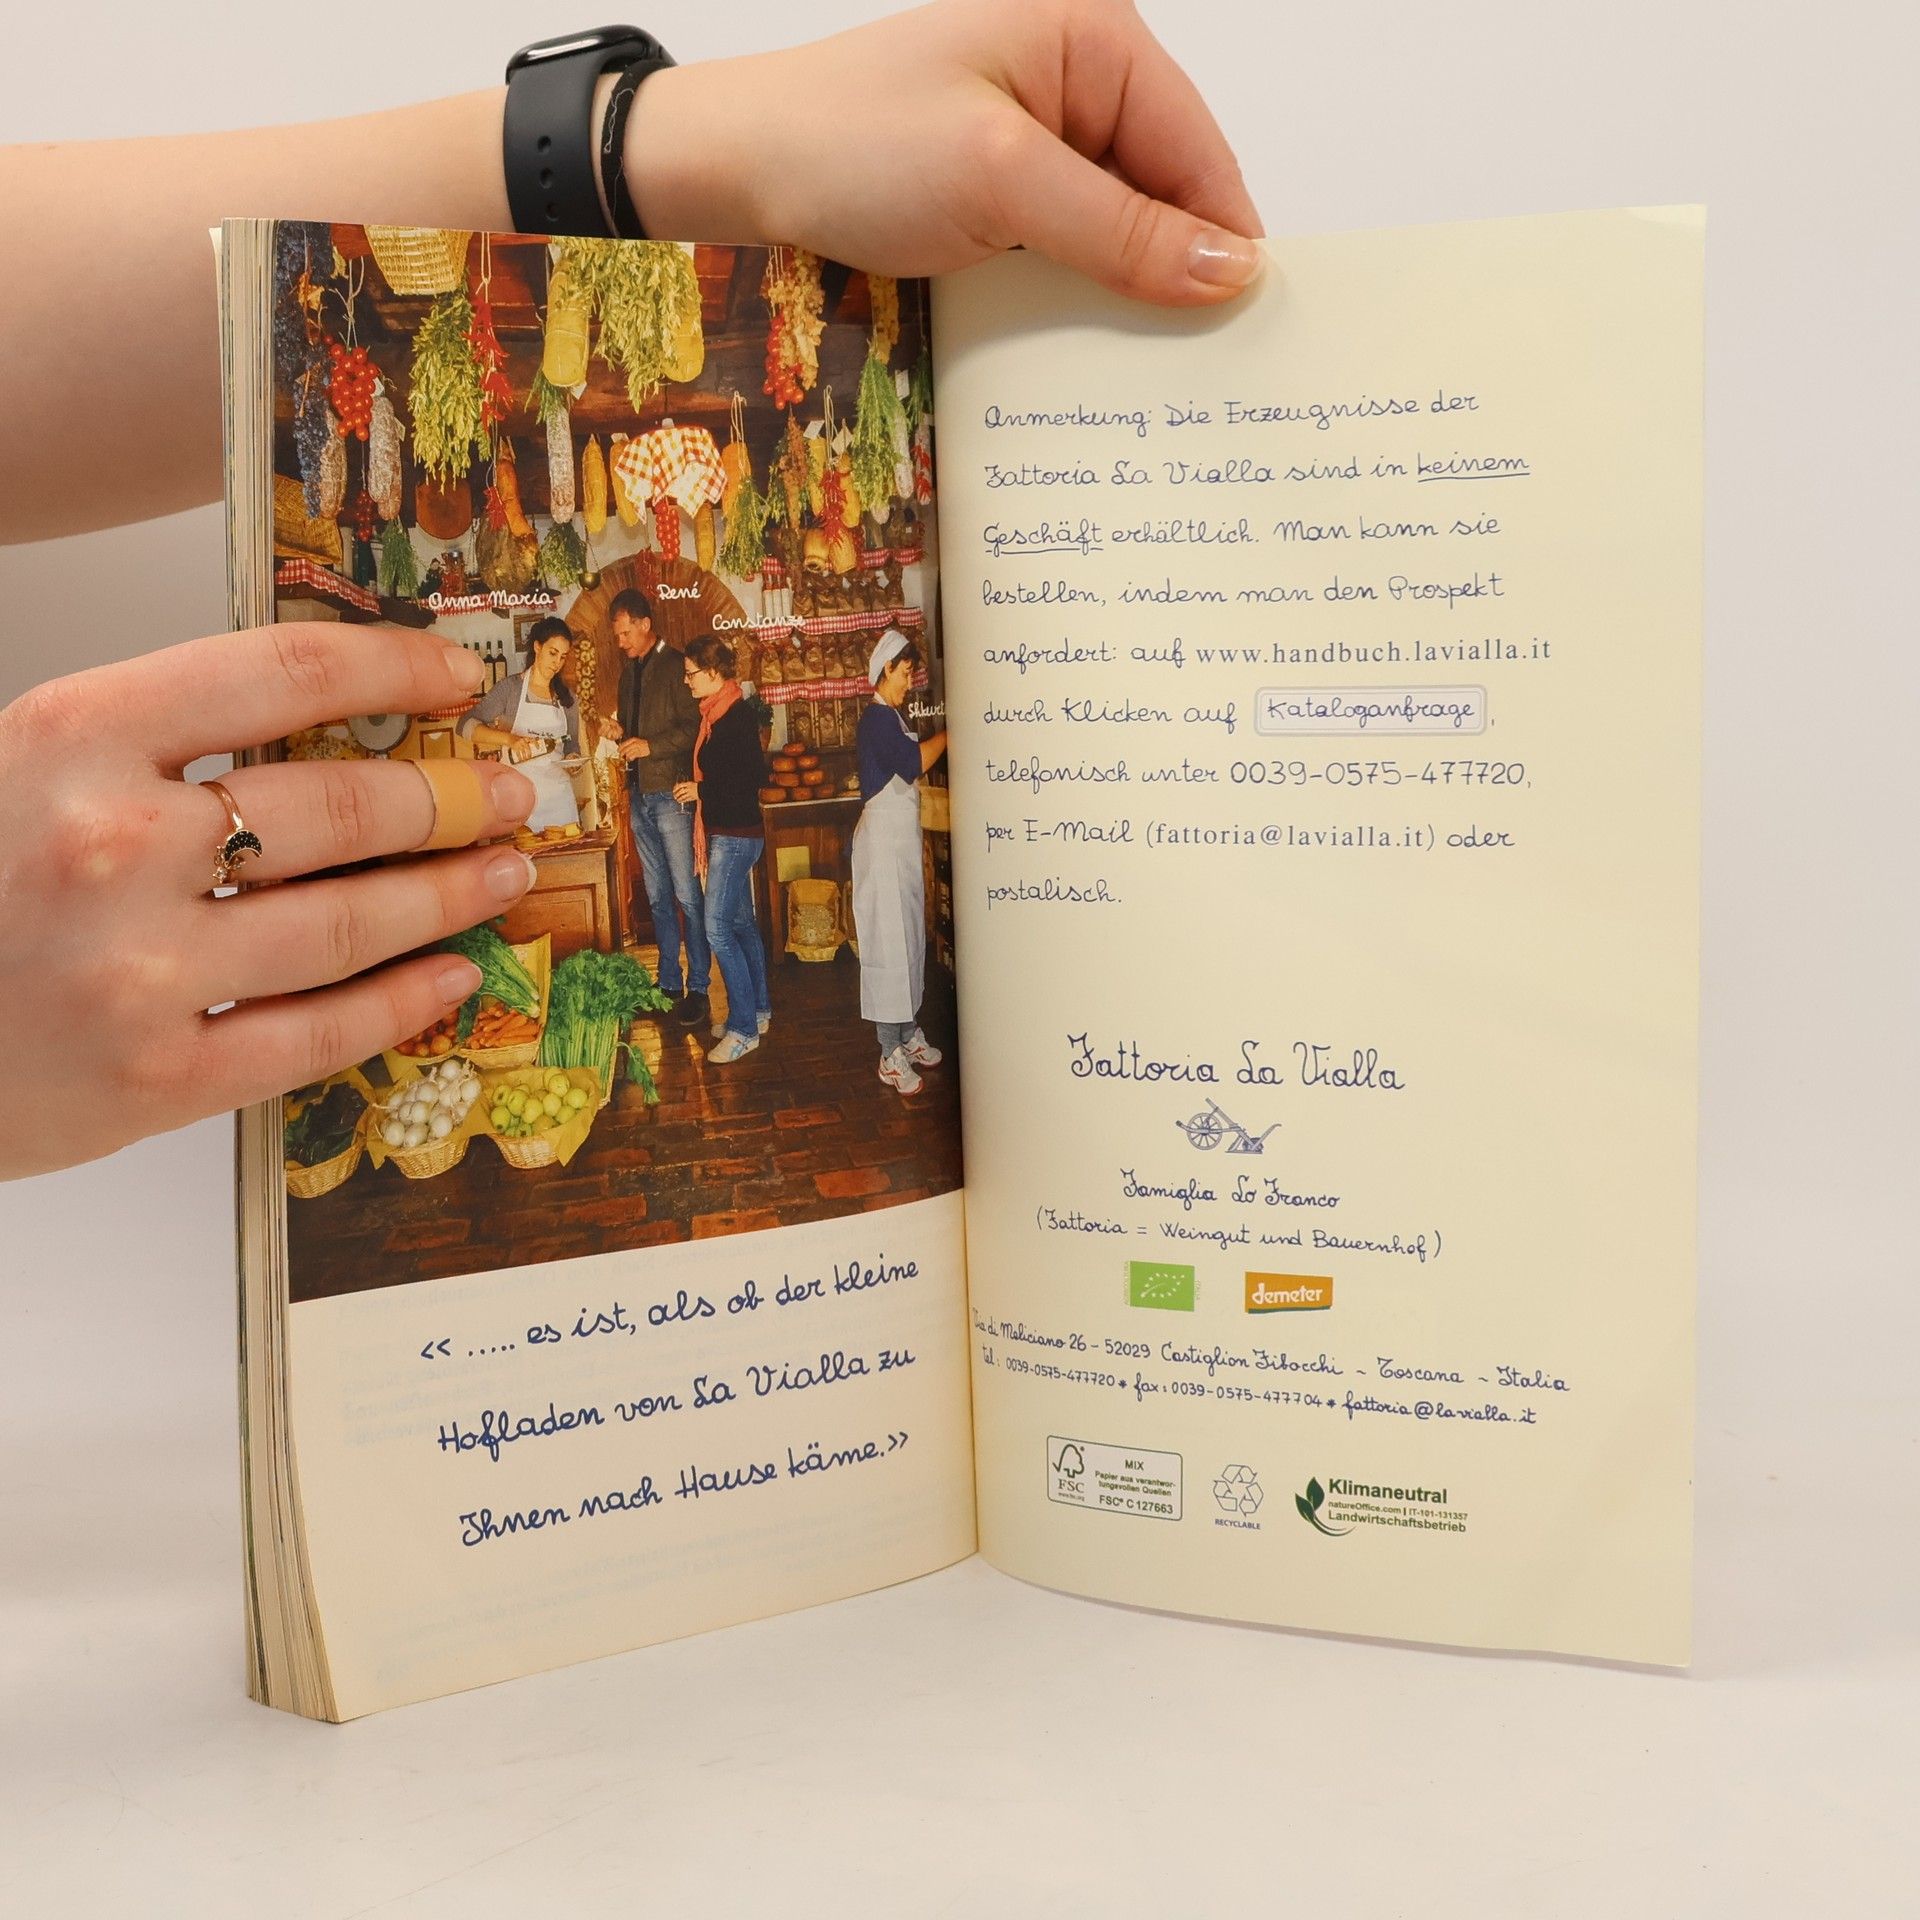 Anna Maria
René
Constanze
«..... es ist, als ob der kleine
Hofladen von La Vialla zu
Ihnen nach Hause käme.»
Anmerkung: Die Erzeugnisse der
Fattoria La Vialla sind in keinem
Geschäft erhältlich. Man kann sie
bestellen, indem man den Prospekt
anfordert: auf www.handbuch.lavialla.it
durch Klicken auf Kataloganfrage,
telefonisch unter 0039-0575-477720,
per E-Mail (fattoria@lavialla.it) oder
postalisch.
Fattoria La Vialla
Famiglia Lo Franco
(Fattoria = Weingut und Bauernhof)
demeter
Via di Meliciano 26 - 52029 Castiglion Fibocchi ~ Toscana ~ Italia
tel: 0039-0575-477720 * fax: 0039-0575-477704 * fattoria@lavialla.it
FSC
www.fsc.org
MIX
Papier aus verantwor-
tungsvollen Quellen
FSC® C127663
RECYCLABLE
Klimaneutral
natureOffice.com | IT-101-131357
Landwirtschaftsbetrieb